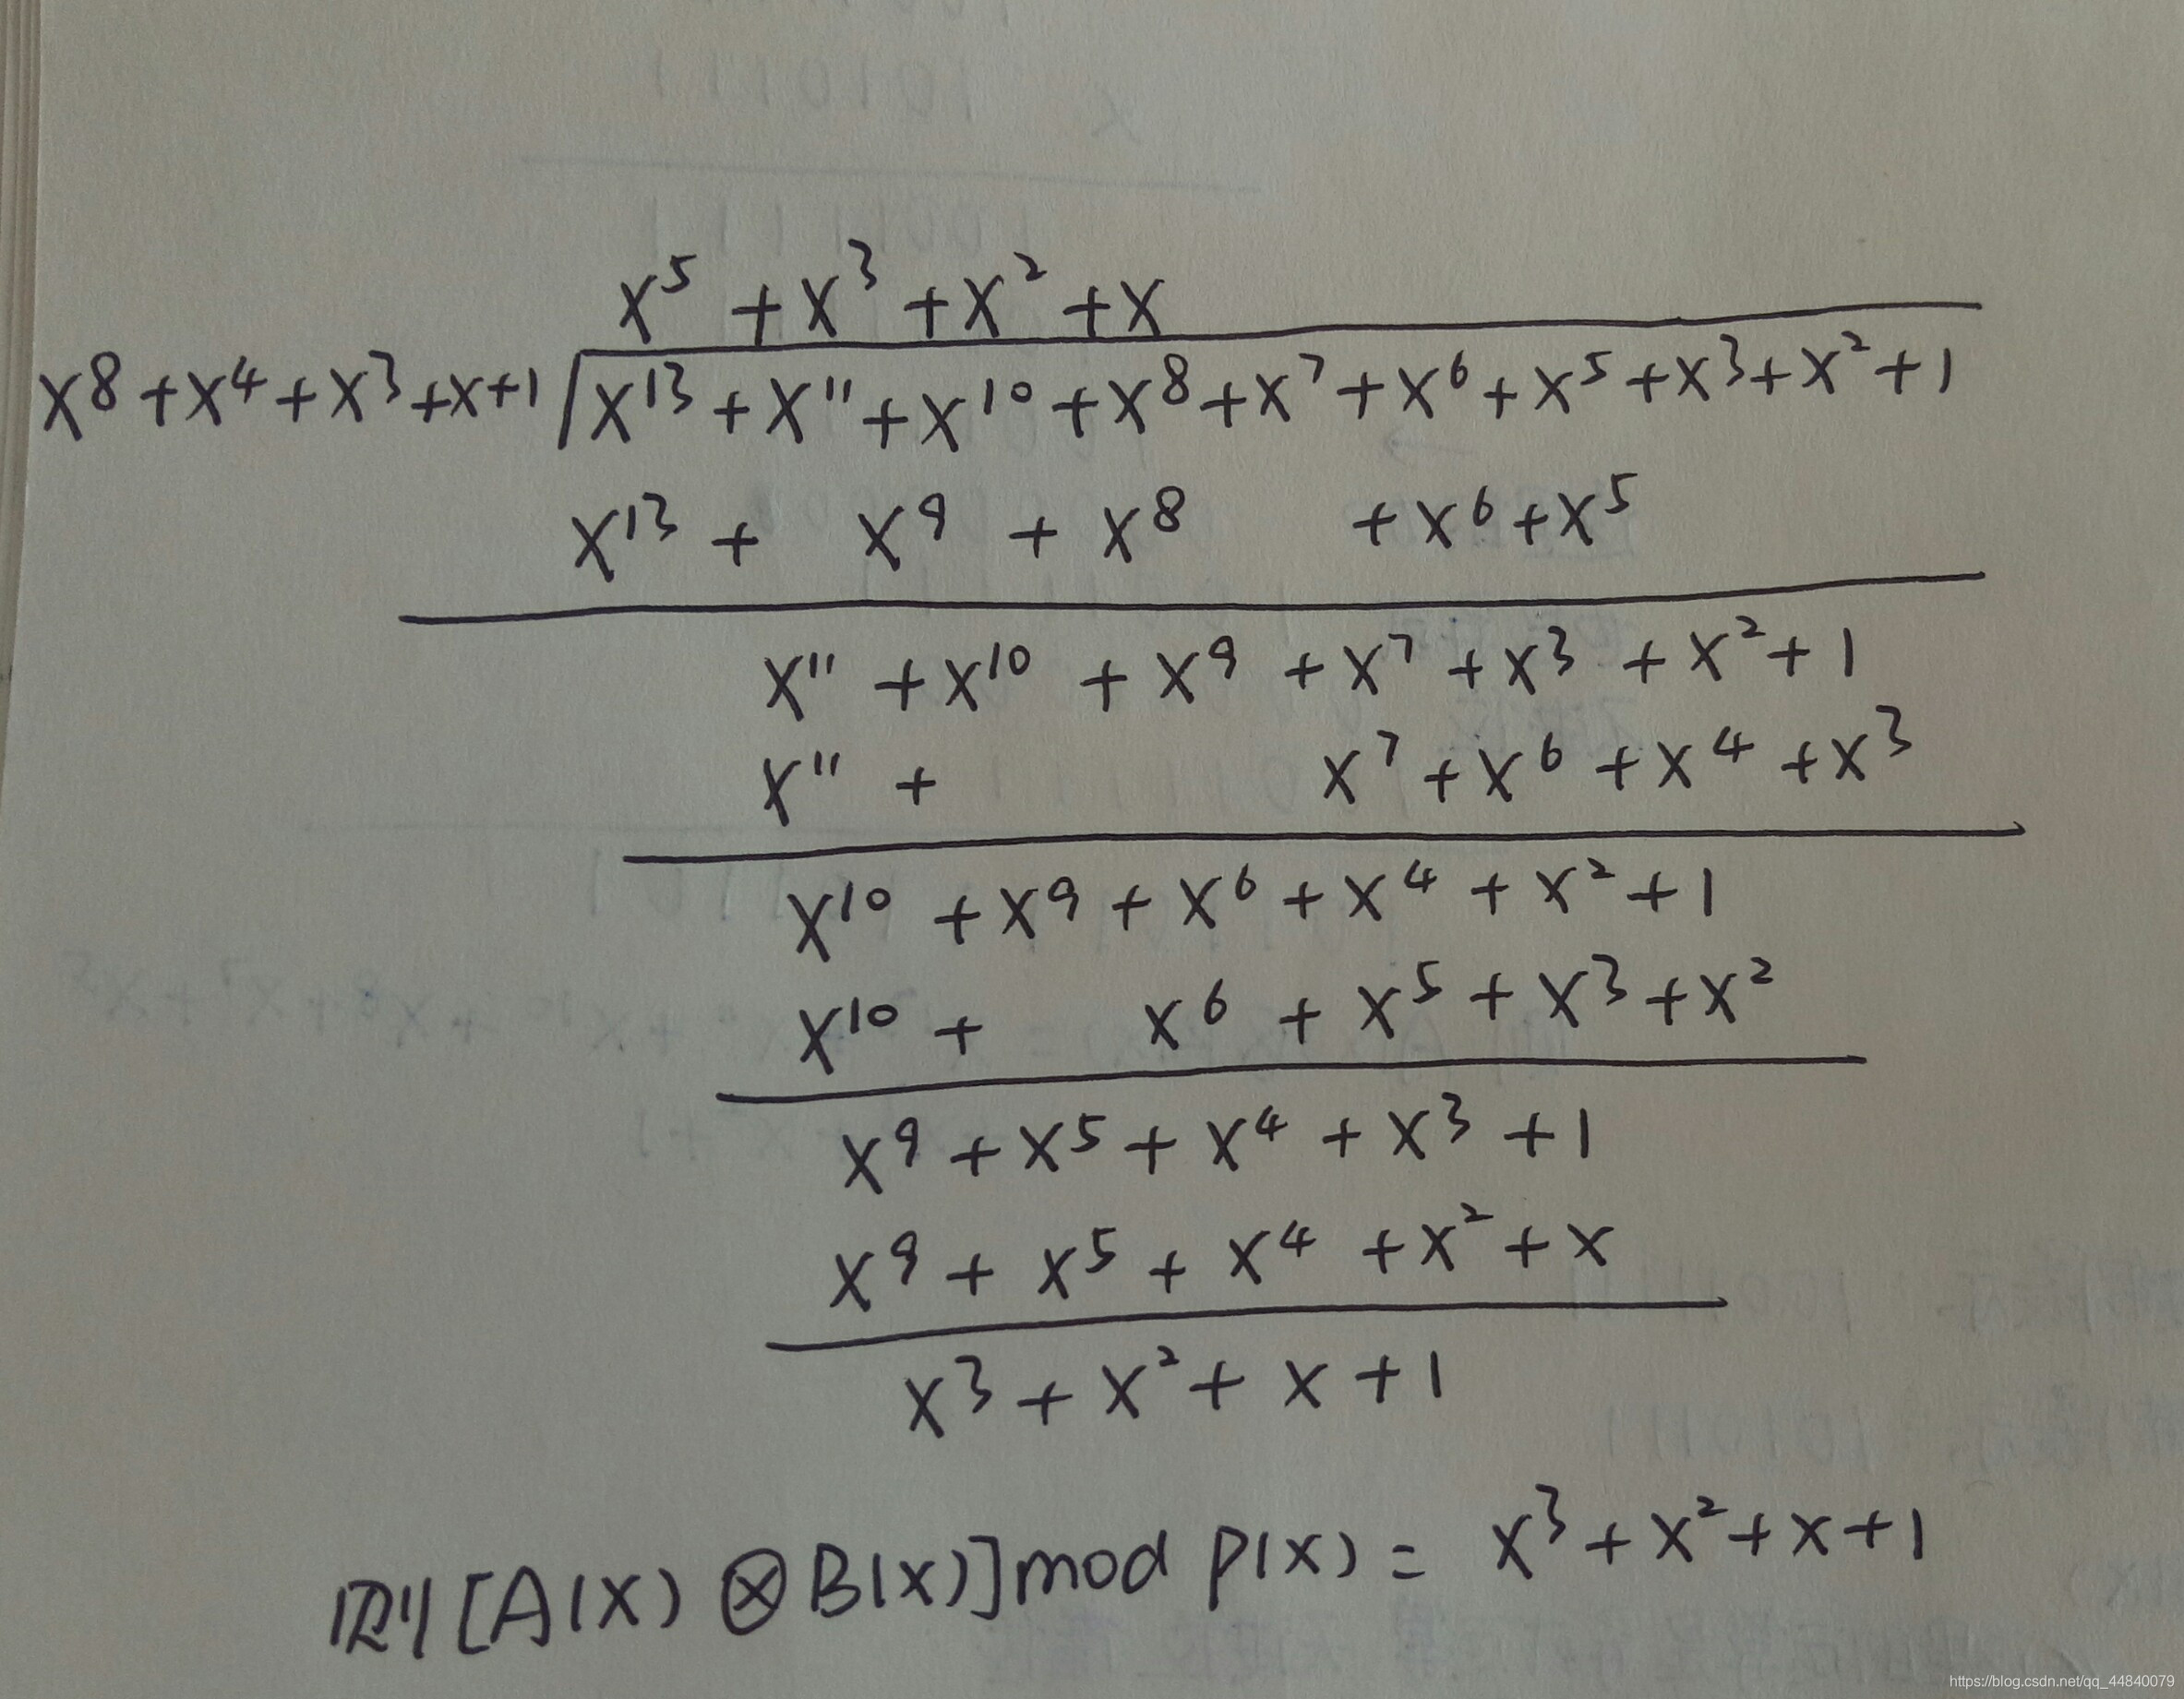 x⁵ + x³ + x² + x
x⁸ + x⁴ + x³ + x + 1 x¹³ + x¹¹ + x¹⁰ + x⁸ + x⁷ + x⁶ + x⁵ + x³ + x² + 1
x¹³ + x⁹ + x⁸ + x⁶ + x⁵
x¹¹ + x¹⁰ + x⁹ + x⁷ + x³ + x² + 1
x¹¹ + x⁷ + x⁶ + x⁴ + x³
x¹⁰ + x⁹ + x⁶ + x⁴ + x² + 1
x¹⁰ + x⁶ + x⁵ + x³ + x²
x⁹ + x⁵ + x⁴ + x³ + 1
x⁹ + x⁵ + x⁴ + x² + x
x³ + x² + x + 1
则 [A(x) ⊗ B(x)] mod P(x) = x³ + x² + x + 1
https://blog.csdn.net/qq_44840079